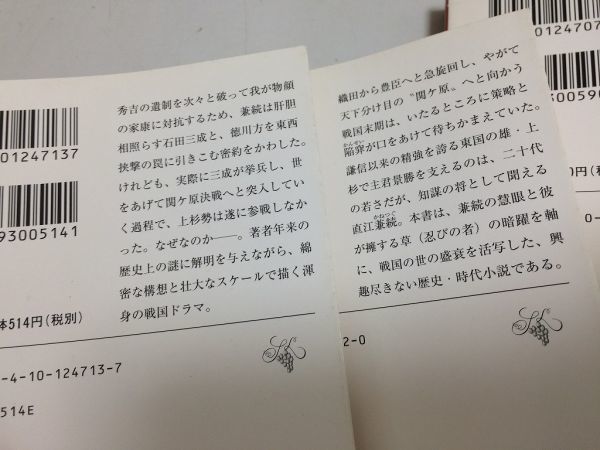 01247137
93005141
体514円(税別)
-4-10-124713-7
514E
秀吉の遺制を次々と破って我が物顔
の家康に対抗するため、兼続は肝胆
相照らす石田三成と、徳川方を東西
挟撃の罠に引きこむ密約をかわした。
けれども、実際に三成が挙兵し、世
をあげて関ケ原決戦へと突入してい
く過程で、上杉勢は遂に参戦しなか
った。なぜなのか――。著者年来の
歴史上の謎に解明を与えながら、綿
密な構想と壮大なスケールで描く渾
身の戦国ドラマ。
織田から豊臣へと急旋回し、やがて
天下分け目の〝関ケ原〟へと向かう
戦国末期は、いたるところに策略と
陥穽が口をあけて待ちかまえていた。
かんせい
謙信以来の精強を誇る東国の雄・上
杉で主君景勝を支えるのは、二十代
の若さだが、知謀の将として聞える
直江兼続。本書は、兼続の慧眼と彼
かねつぐ
が擁する草(忍びの者)の暗躍を軸
に、戦国の世の盛衰を活写した、興
趣尽きない歴史・時代小説である。
2-0
01247